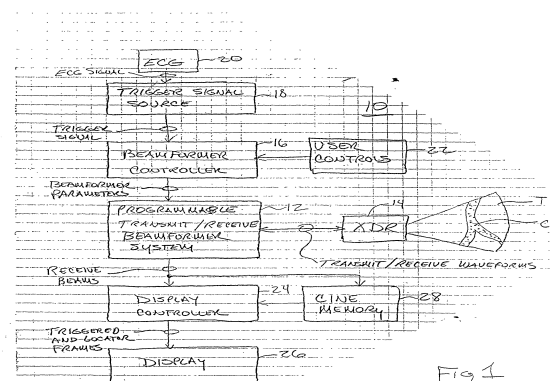 ECG
20
ECG SIGNAL
TRIGGER SIGNAL
SOURCE
18
10
TRIGGER
SIGNAL
BEAMFORMER
CONTROLLER
16
USER
CONTROLS
22
BEAMFORMER
PARAMETERS
PROGRAMMABLE
TRANSMIT/RECEIVE
BEAMFORMER
SYSTEM
12
XDR
14
T
C
TRANSMIT/RECEIVE WAVEFORMS
RECEIVE
BEAMS
DISPLAY
CONTROLLER
24
CINE
MEMORY
28
TRIGGERED
AND LOCATOR
FRAMES
DISPLAY
26
FIG 1